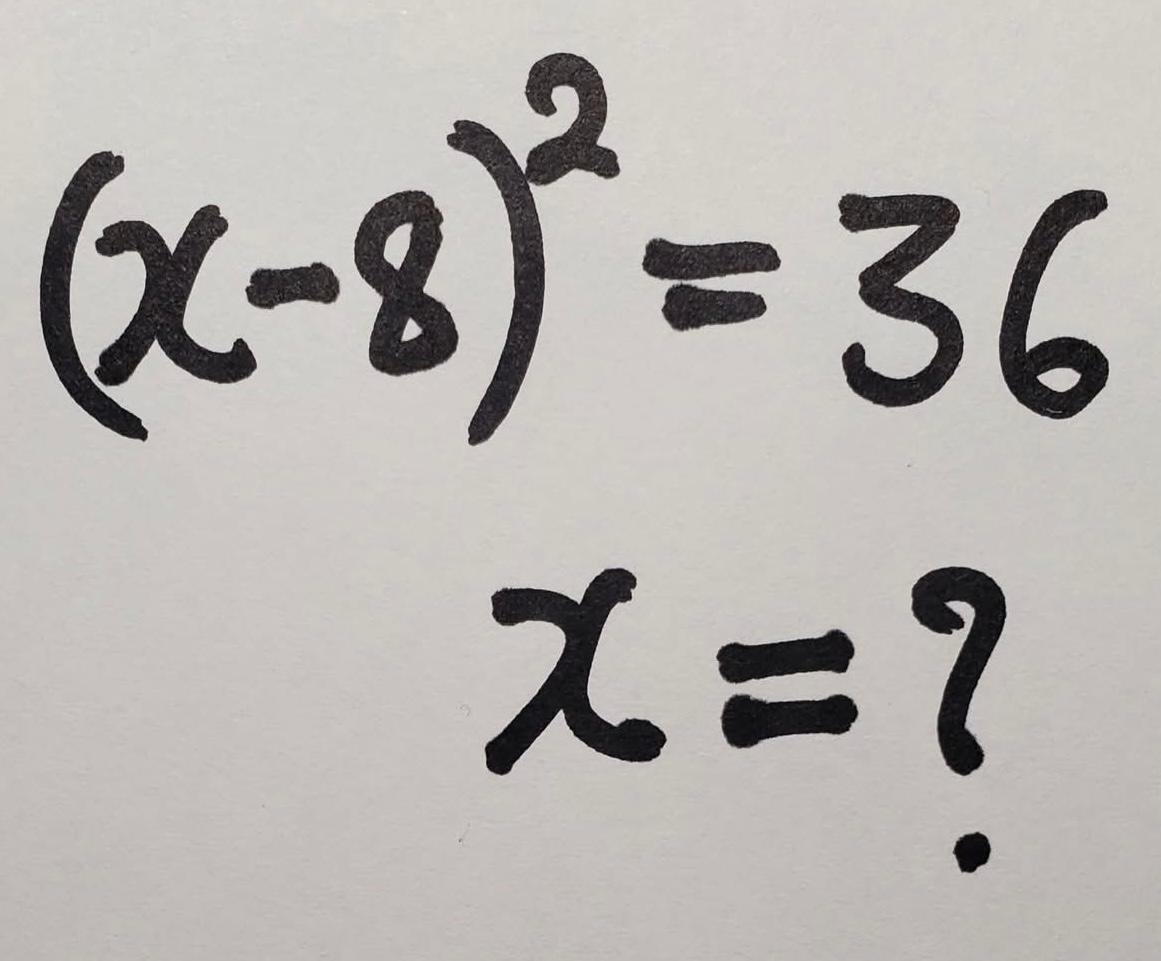 (x-8)² = 36
x = ?